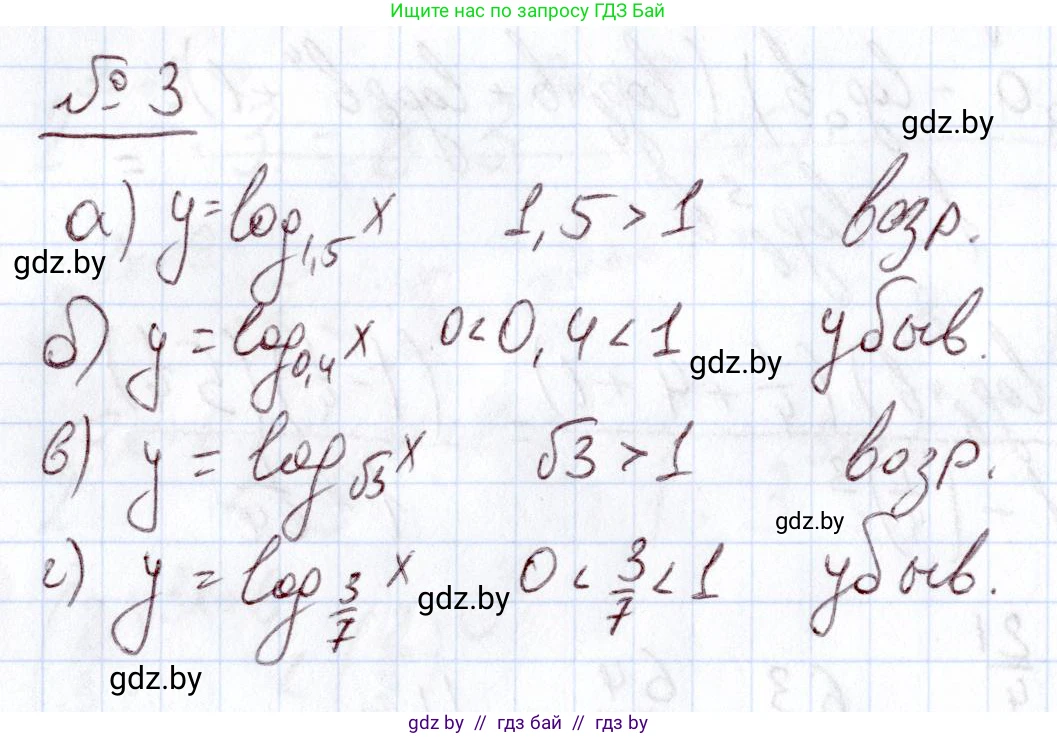 Ищите нас по запросу ГДЗ Бай
№ 3
gdz.by
а) y = log_{1,5} x 1,5 > 1 возр.
gdz.by
б) y = log_{0,4} x 0 < 0,4 < 1 убыв.
gdz.by
в) y = log_{√3} x √3 > 1 возр.
gdz.by
г) y = log_{3/7} x 0 < 3/7 < 1 убыв.
gdz.by
gdz.by
gdz.by // гдз бай // гдз by